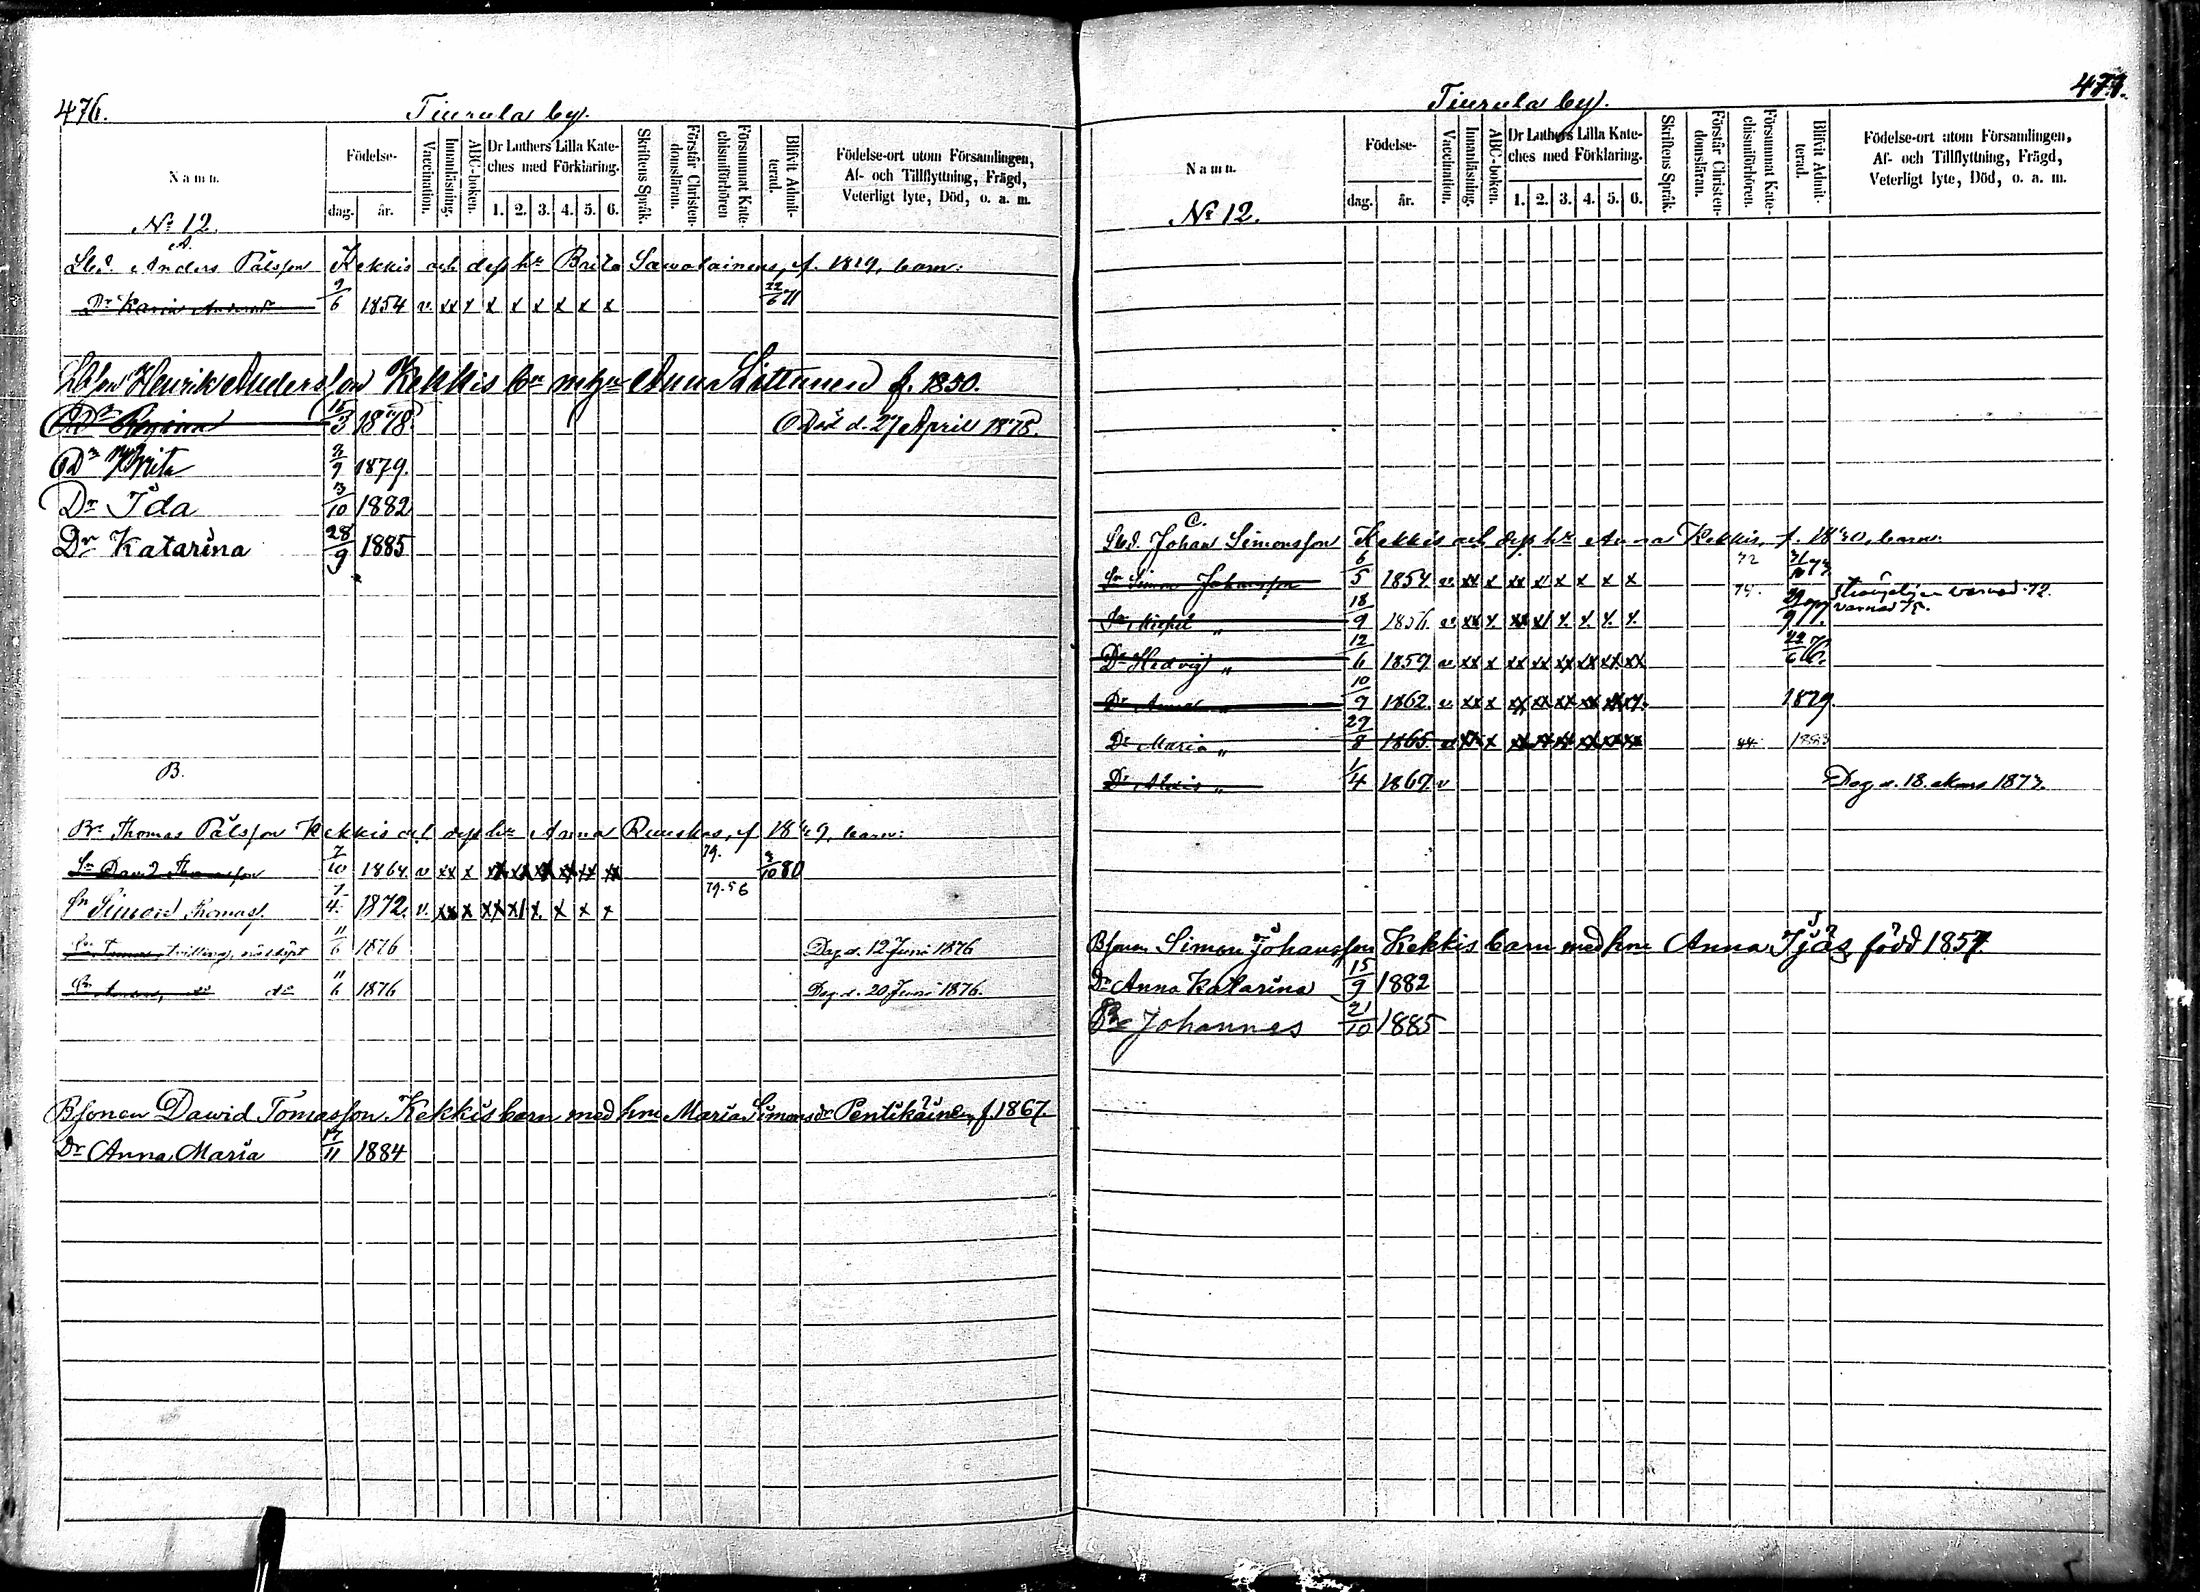 476.
Tiurula by.
Namn.
Födelse-
dag.
år.
Vaccination.
Innanläsning.
ABC-boken.
Dr Luthers Lilla Kate-
ches med Förklaring.
1. 2. 3. 4. 5. 6.
Skriftens Språk.
Förstår Christen-
domsläran.
Försummat Kate-
chismiförhören
Blifvit Admit-
terad.
Födelse-ort utom Församlingen,
Af- och Tillflyttning, Frägd,
Veterligt lyte, Död, o. a. m.
No 12.
A.
Anders Pålsson Kekkis och dess hu Brita Sawolainens, f. 1819, barn:
Dr Karin Andersdr 9/6 1854 v. xx x x x x x x x 22/6 71
Henrik Andersson Kekkis bn m hu Anna f. 1850.
Dr Regina 15/3 1878 Död d. 27 April 1878.
Dr Brita 3/9 1879.
Dr Ida 3/10 1882
Dr Katarina 28/9 1885
B.
Br. Thomas Pålsson Kekkis och dess hu Anna Ruuskas, f. 1829, barn:
79.
Sn David Thomasson 7/10 1864 v xx x xx xx xx xx xx xx 3/10 80
79. 56
Sn Simon Thomass. 7/4 1872. v. xx x xx x x x x x
Sn Tomas, tvilling, nöddöpt 11/6 1876 Dog d. 12 Juni 1876
Sn do do 11/6 1876 Dog d. 20 Juni 1876.
Bsonen Dawid Tomasson Kekkis barn med hu Maria Simonsdr Pentikäinen, f. 1867.
Dr Anna Maria 17/11 1884
477.
Tiurula by.
Namn.
Födelse-
dag.
år.
Vaccination.
Innanläsning.
ABC-boken.
Dr Luthers Lilla Kate-
ches med Förklaring.
1. 2. 3. 4. 5. 6.
Skriftens Språk.
Förstår Christen-
domsläran.
Försummat Kate-
chismiförhören.
Blifvit Admit-
terad.
Födelse-ort utom Församlingen,
Af- och Tillflyttning, Frägd,
Veterligt lyte, Död, o. a. m.
No 12.
C.
Johan Simonsson Kekkis och dess hu Anna Kekkis, f. 1830, barn:
Sn Simon Johansson 6/5 1854 v. xx x xx x x x x x 72
Sn Michel " 18/9 1856. v. xx x. xx x x. x. x. x. 74. 77. warnad 72.
warnad 75.
Dr Hedvig " 12/6 1859 v. xx x xx xx xx xx xx xx 22/6 76.
Dr Anna " 10/9 1862. v. xx x xx xx xx xx xx x. 1879.
Dr Maria " 27/8 1865. v. xx x xx xx xx xx xx xx 44. 1883
Dr " 1/4 1869. v Dog d. 18. Mars 1873.
Bsonen Simon Johansson Kekkis barn med hu Anna Ijäs, född 1857.
Dr Anna Katarina 15/9 1882
Sn Johannes 21/10 1885